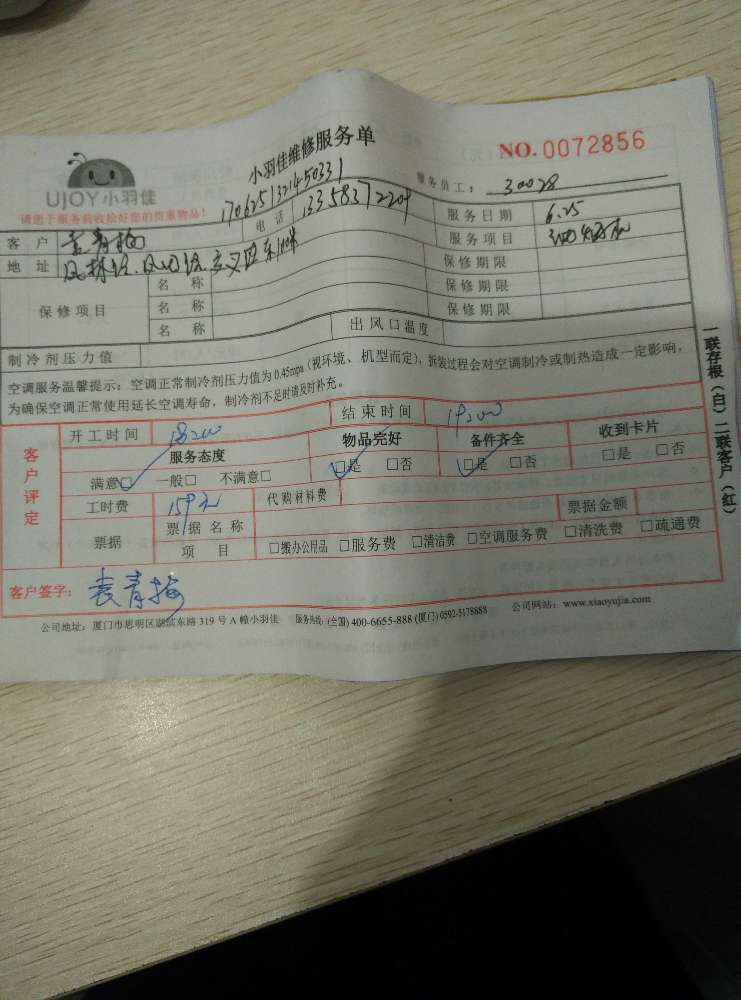 UJOY小羽佳
小羽佳维修服务单
NO. 0072856
请您于服务前收拾好您的贵重物品!
服务员工: 30028
客户 袁青梅 电话 服务日期 6.25
服务项目
地址
保修项目 名称 保修期限
名称 保修期限
名称 保修期限
制冷剂压力值 出风口温度
空调服务温馨提示:空调正常制冷剂压力值为0.45mpa(视环境、机型而定),拆装过程会对空调制冷或制热造成一定影响,
为确保空调正常使用延长空调寿命,制冷剂不足时请及时补充。
客户评定
开工时间 结束时间
服务态度 物品完好 备件齐全 收到卡片
满意□ 一般□ 不满意□ □是 □否 □是 □否 □是 □否
工时费 159元 代购材料费
票据 票据名称 票据金额
项目 □搬办公用品 □服务费 □清洁费 □空调服务费 □清洗费 □疏通费
客户签字: 袁青梅
公司地址:厦门市思明区湖滨东路319号A幢小羽佳 服务热线:(全国)400-6655-888(厦门)0592-5178888 公司网站:www.xiaoyujia.com
一联存根(白)二联客户(红)